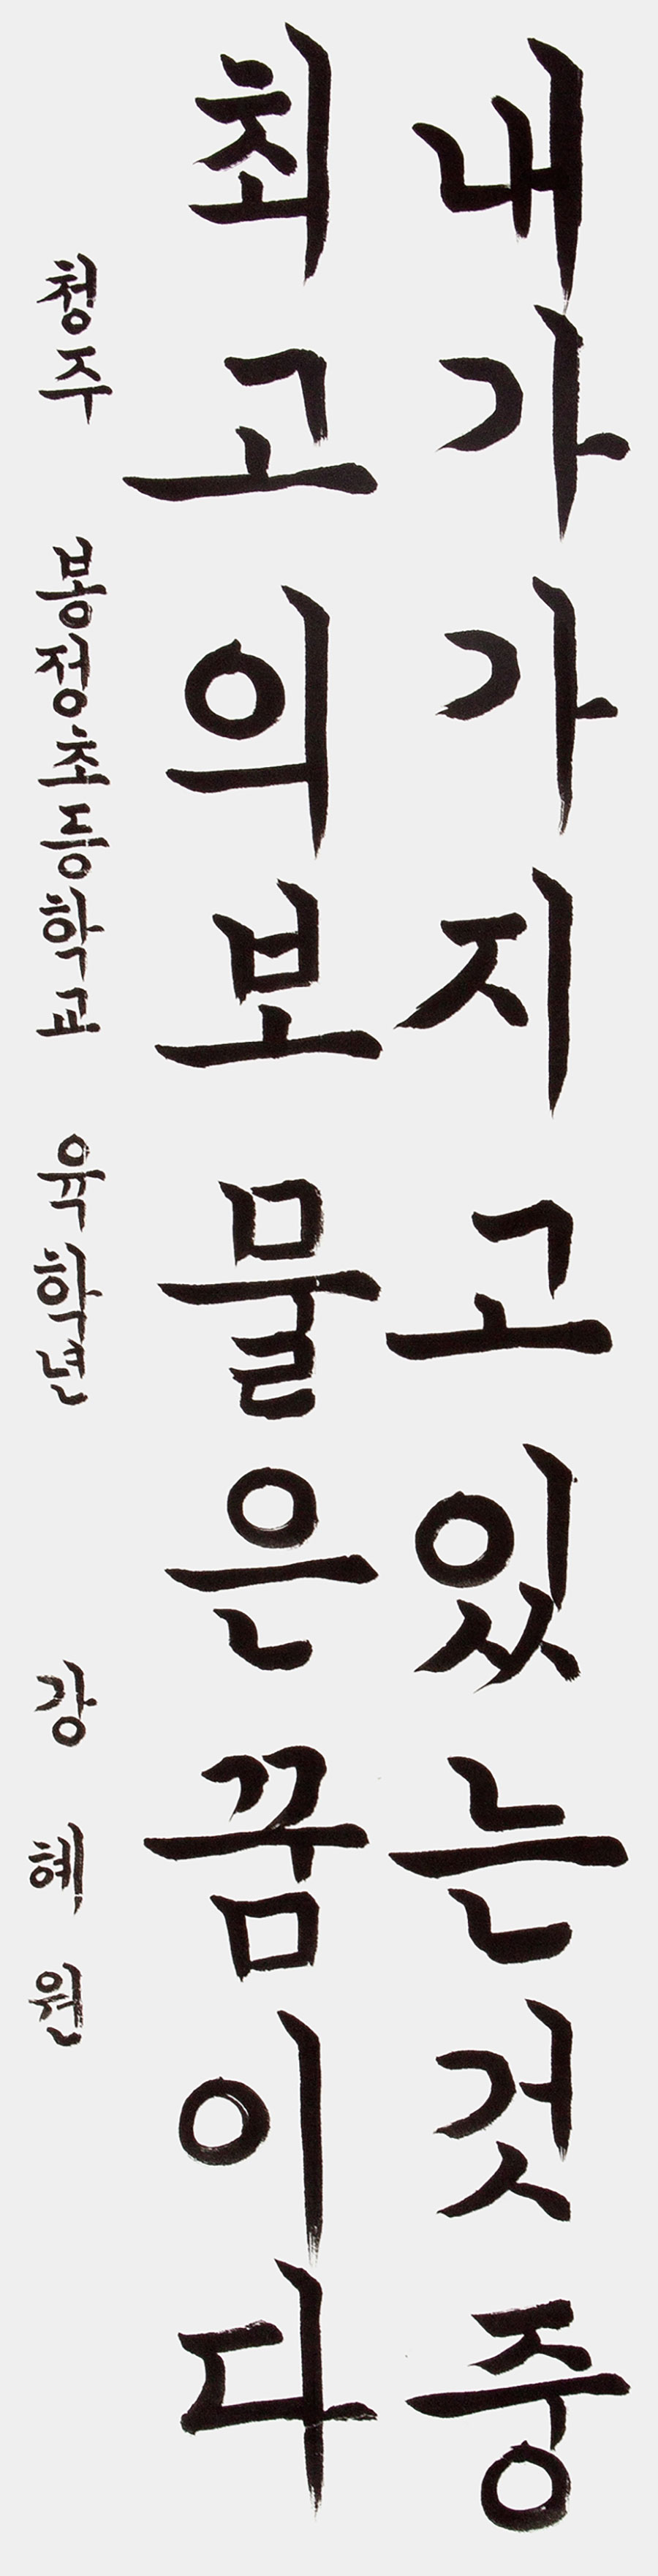 내가 가지고 있는 것 중
최고의 보물은 꿈이다
청주 봉정초등학교 육학년 강혜원